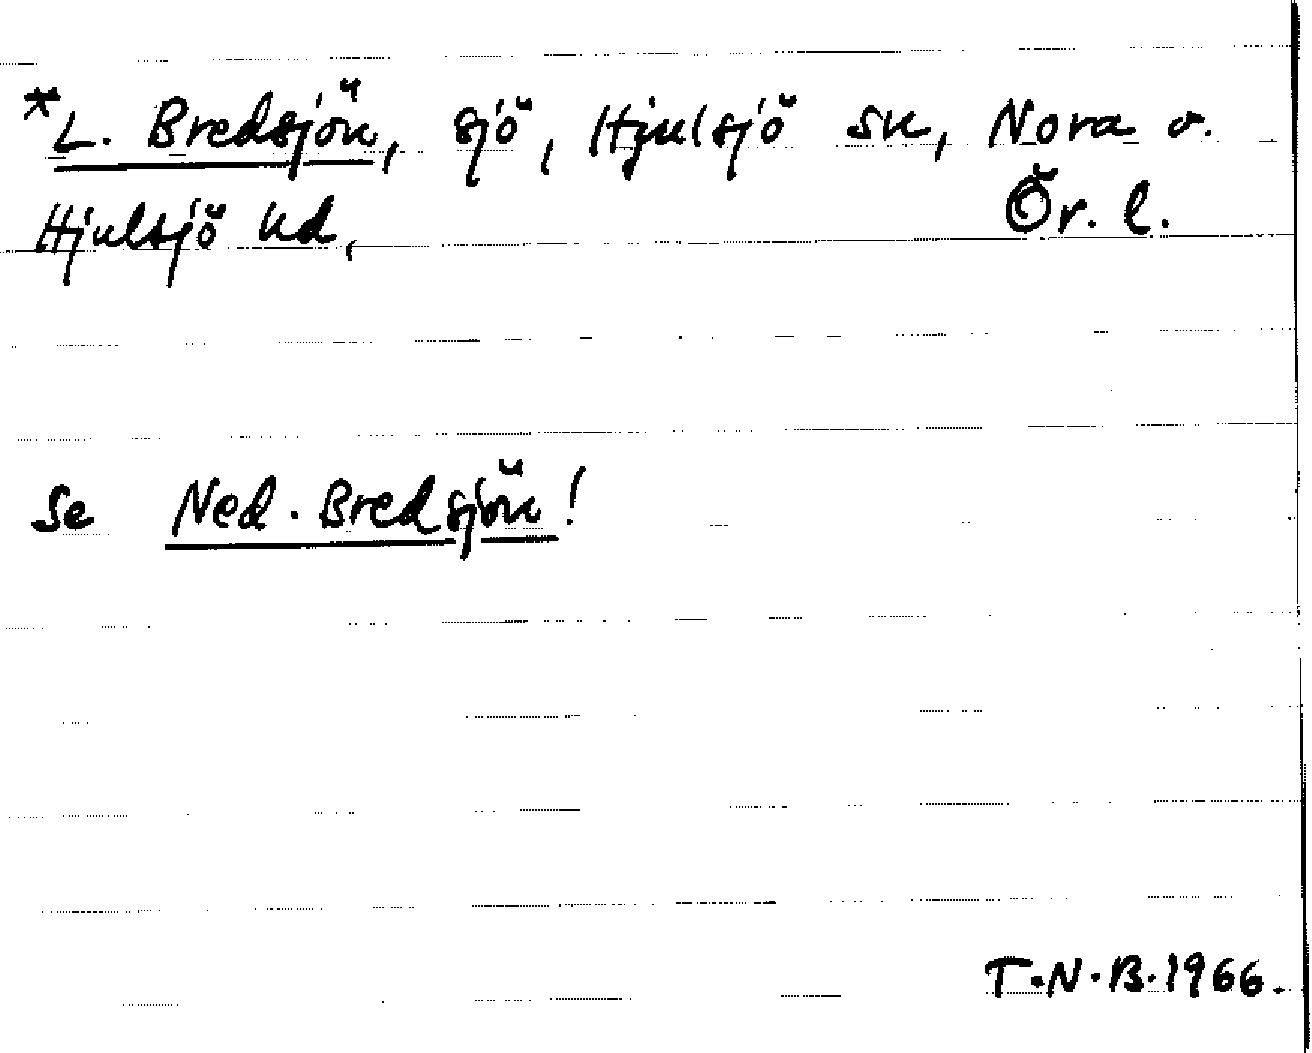 *L. Bredsjön, sjö, Hjulsjö sn, Nora o.
Hjulsjö hd, Ör. l.
Se Ned. Bredsjön!
T.N.B. 1966.